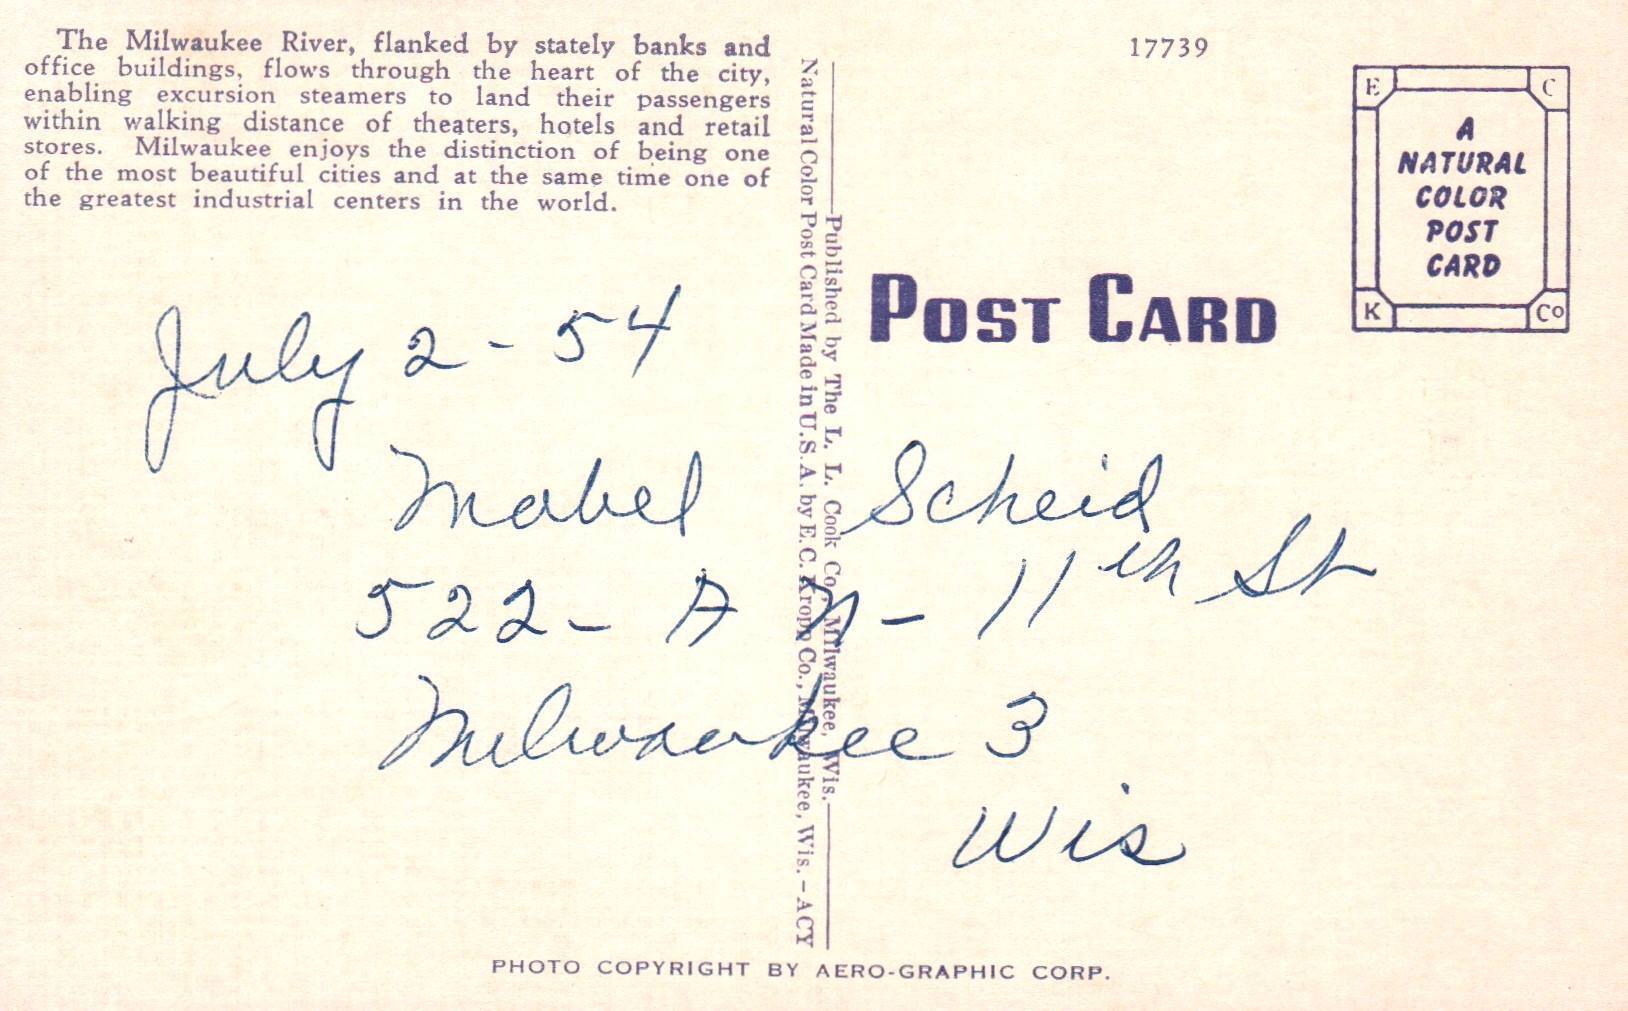 The Milwaukee River, flanked by stately banks and
office buildings, flows through the heart of the city,
enabling excursion steamers to land their passengers
within walking distance of theaters, hotels and retail
stores. Milwaukee enjoys the distinction of being one
of the most beautiful cities and at the same time one of
the greatest industrial centers in the world.
17739
E C
A
NATURAL
COLOR
POST
CARD
K Co
POST CARD
Published by The L. L. Cook Co., Milwaukee, Wis.
Natural Color Post Card Made in U.S.A. by E. C. Kropp Co., Milwaukee, Wis. - ACY
July 2 - 54
Mabel Scheid
522 - A N - 11th St
Milwaukee 3
Wis
PHOTO COPYRIGHT BY AERO-GRAPHIC CORP.